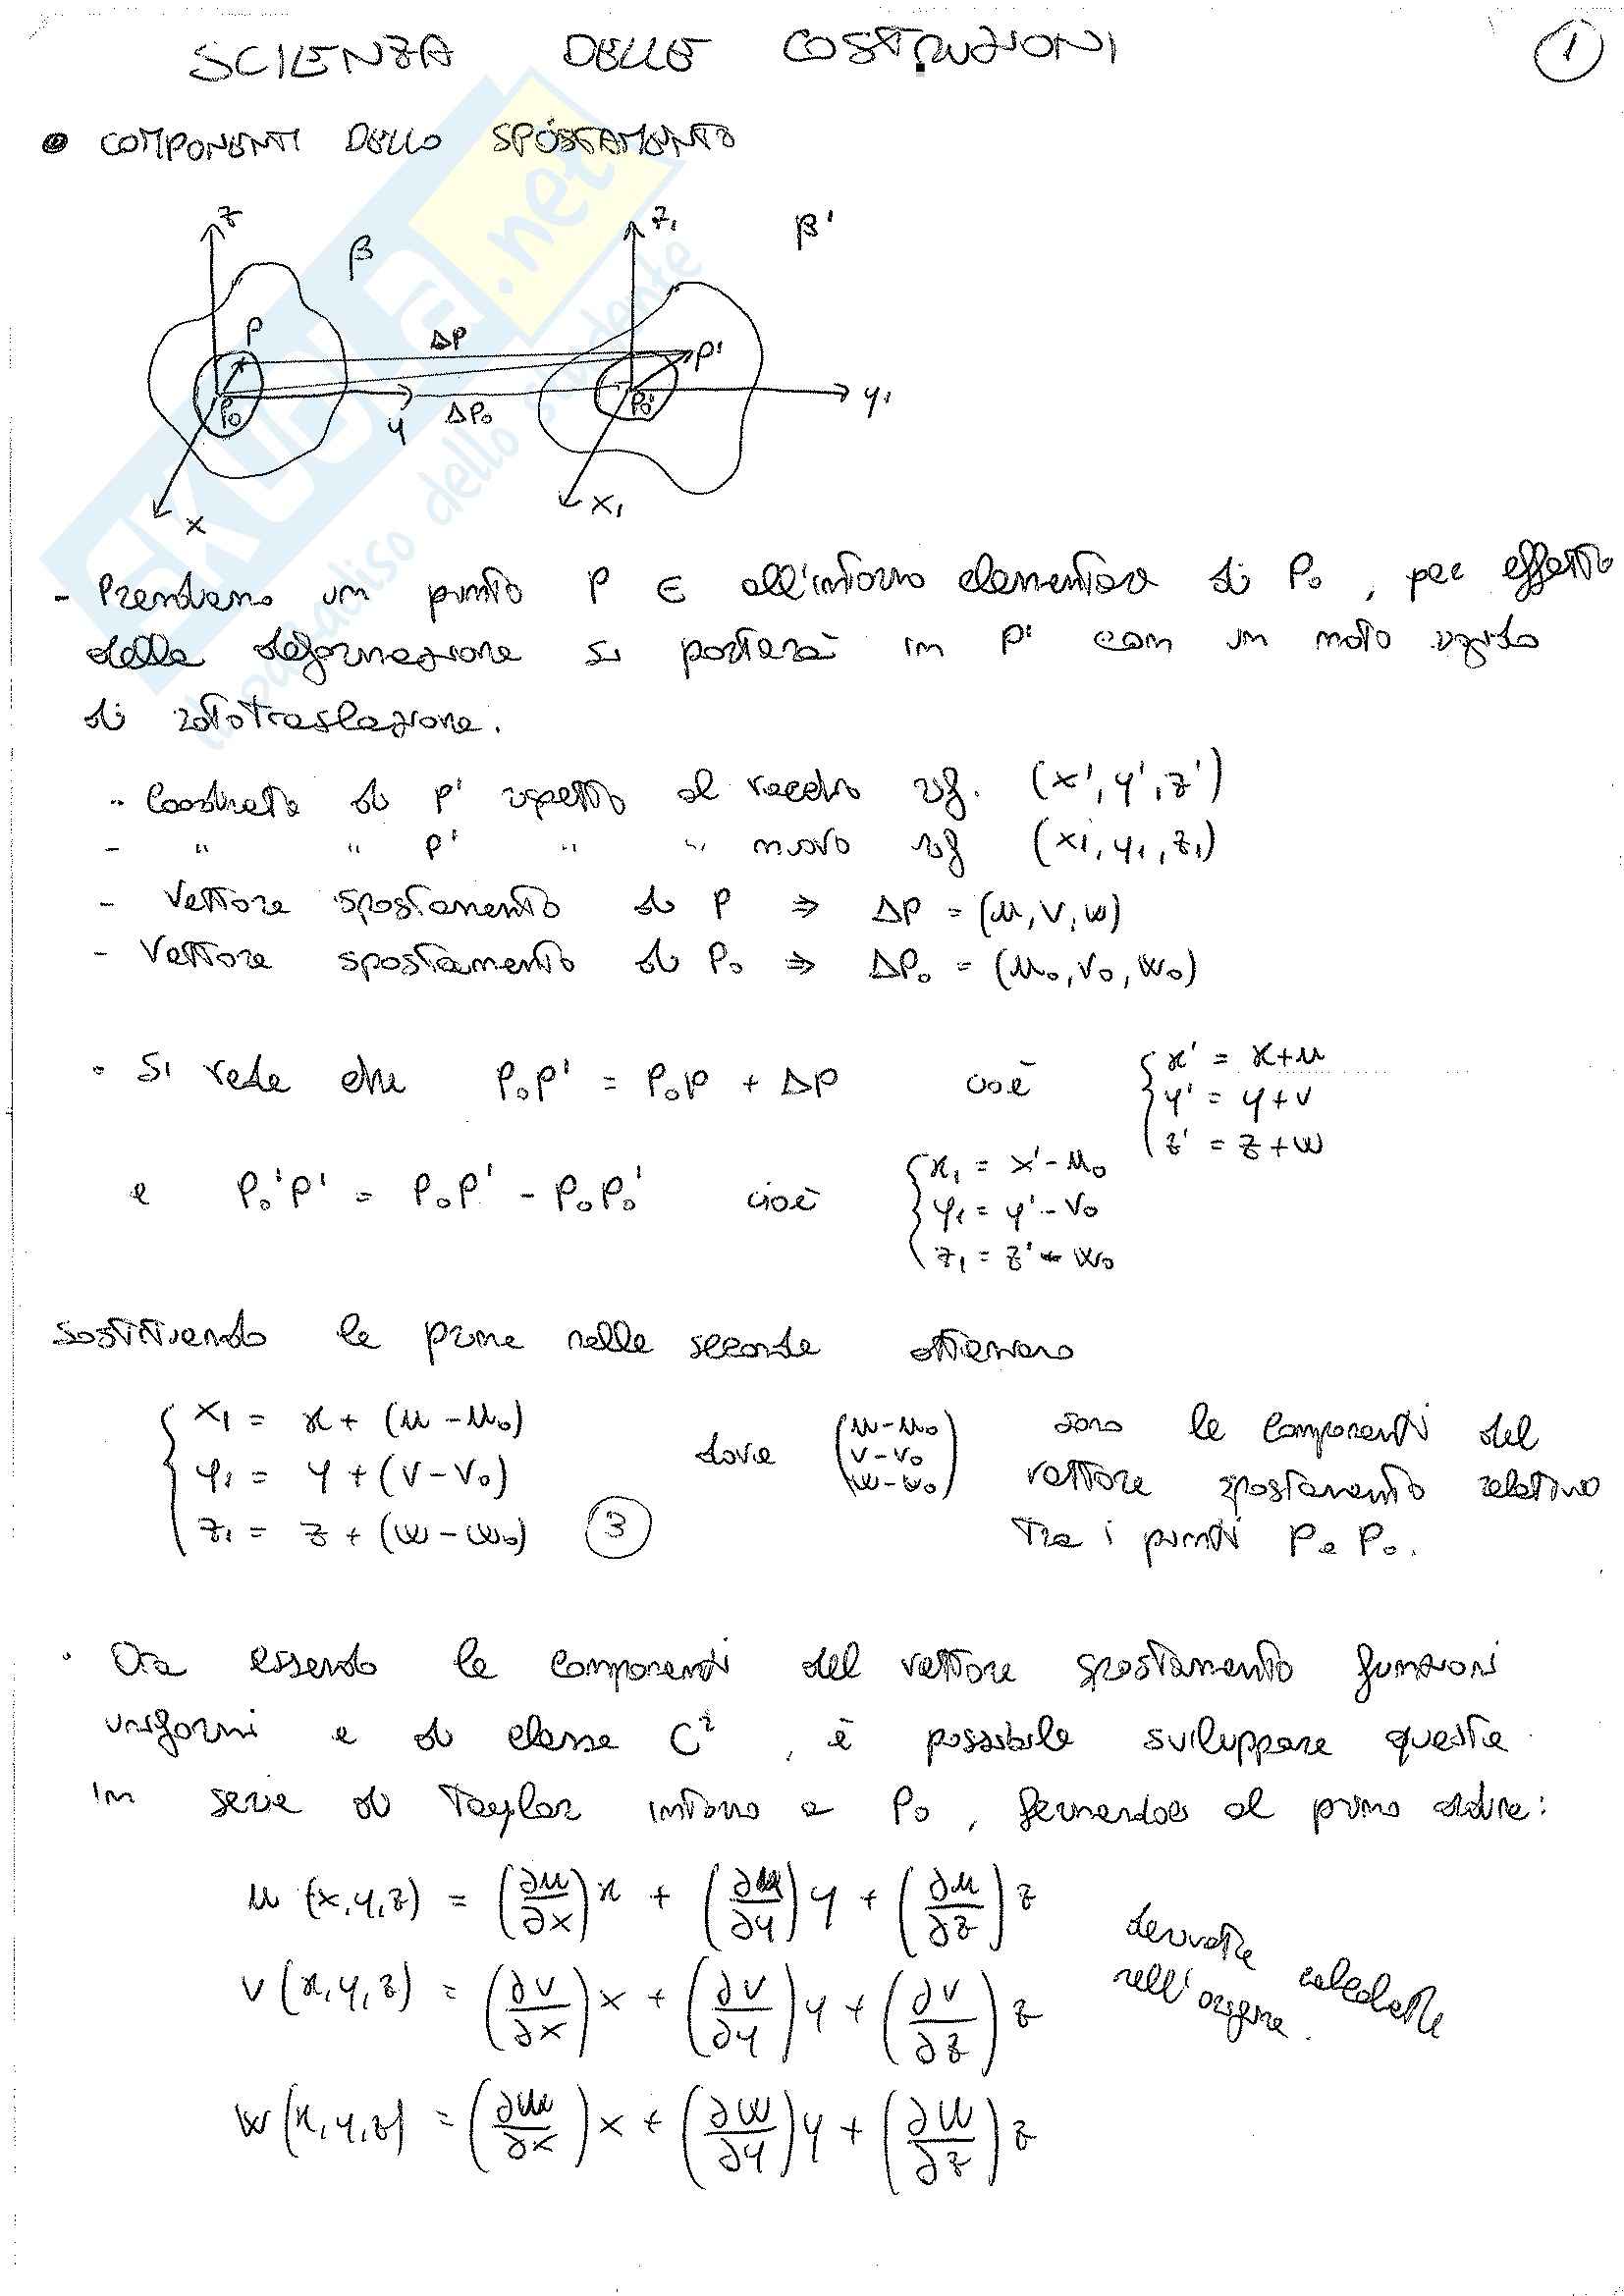 SCIENZA DELLE COSTRUZIONI
1
COMPONENTI DELLO SPOSTAMENTO
z β z₁ β'
P ΔP P'
P₀ y ΔP₀ P₀' y₁
x x₁
- Prendiamo un punto P ∈ all'intorno elementare di P₀, per effetto
della deformazione si porterà in P' con un moto rigido
di rototraslazione.
- Coordinate di P' rispetto al vecchio rif. (x', y', z')
- " " P' " " nuovo rif (x₁, y₁, z₁)
- Vettore spostamento di P ⇒ ΔP = (u, v, w)
- Vettore spostamento di P₀ ⇒ ΔP₀ = (u₀, v₀, w₀)
• Si vede che P₀P' = P₀P + ΔP cioè { x' = x+u
y' = y+v
z' = z+w
e P₀'P' = P₀P' - P₀P₀' cioè { x₁ = x' - u₀
y₁ = y' - v₀
z₁ = z' - w₀
Sostituendo le prime nelle seconde otteniamo
{ x₁ = x + (u - u₀)
y₁ = y + (v - v₀)
z₁ = z + (w - w₀) 3
dove (u - u₀
v - v₀
w - w₀) sono le componenti del
vettore spostamento relativo
tra i punti P e P₀.
• Ora essendo le componenti del vettore spostamento funzioni
uniformi e di classe C², è possibile sviluppare queste
in serie di Taylor intorno a P₀, fermandoci al primo ordine:
u (x,y,z) = (∂u/∂x)x + (∂u/∂y)y + (∂u/∂z)z
v (x,y,z) = (∂v/∂x)x + (∂v/∂y)y + (∂v/∂z)z
w (x,y,z) = (∂w/∂x)x + (∂w/∂y)y + (∂w/∂z)z
derivate calcolate
nell'origine.
SKUOLA.net
il paradiso dello studente